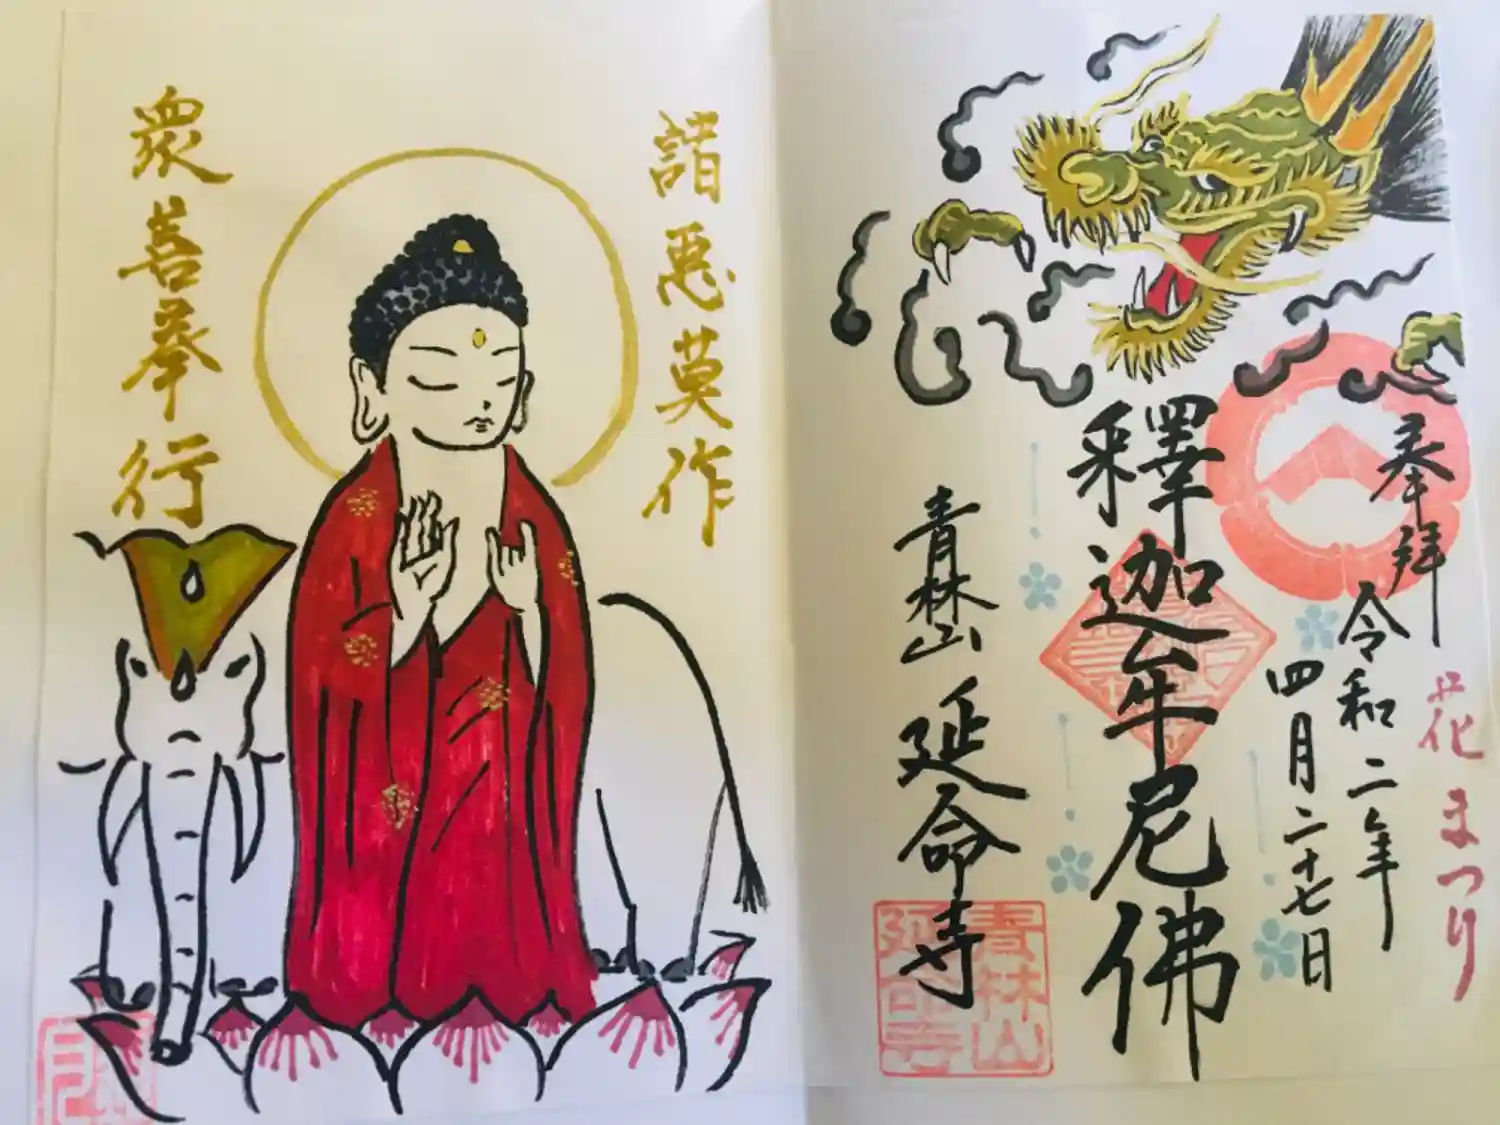 花まつり
奉拝
令和二年
四月二十七日
釋迦牟尼佛
青林山 延命寺
青林山
延命寺
諸悪莫作
衆善奉行